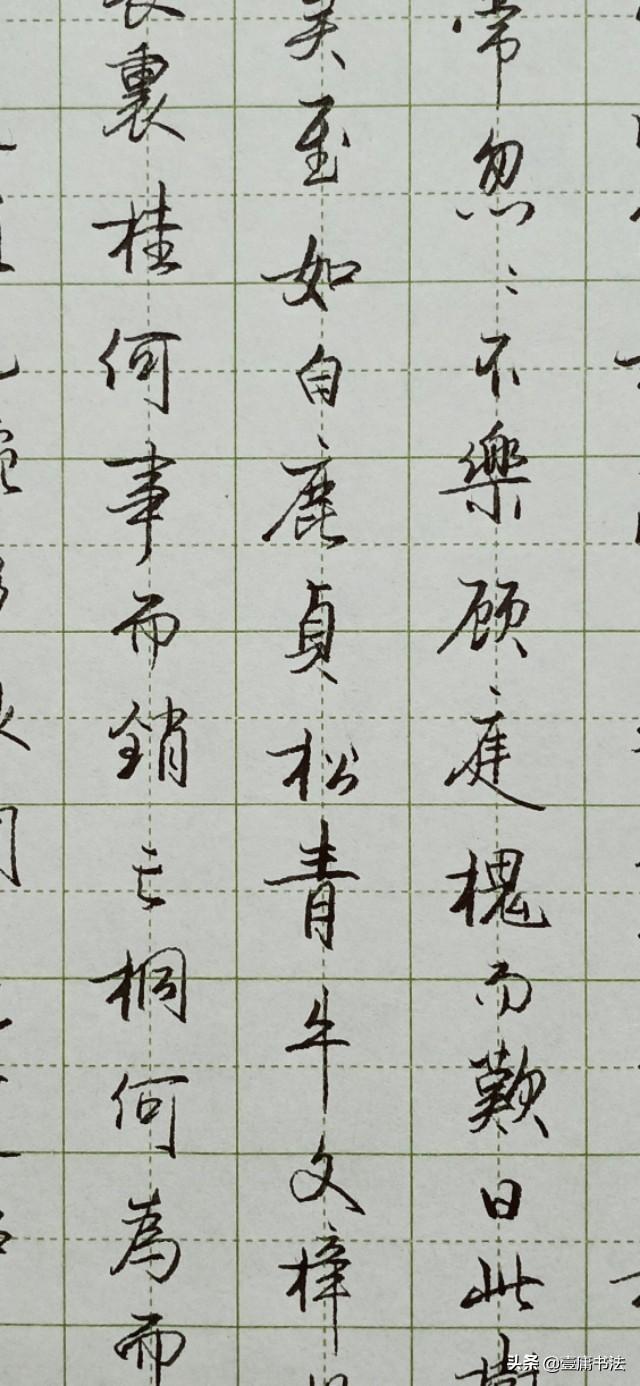 常忽〻不樂顾庭槐而歎曰此樹
矣至如白鹿貞松青牛文榟
裏桂何事而銷亡桐何為而
头条 @壹庸书法